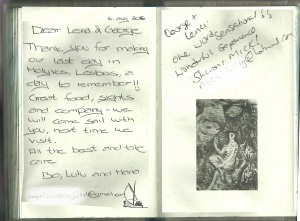 6 Aug 2015
Dear Lena & George
Thank you for making
our last day in
Molyvos, Lesbos, a
day to remember!!
Great food, sights
and company - we
will come sail with
you, next time we
visit.
All the best and take
care
Bo, Lulu and
George +
Lena!
One word sensational!!
Wonderful Experience